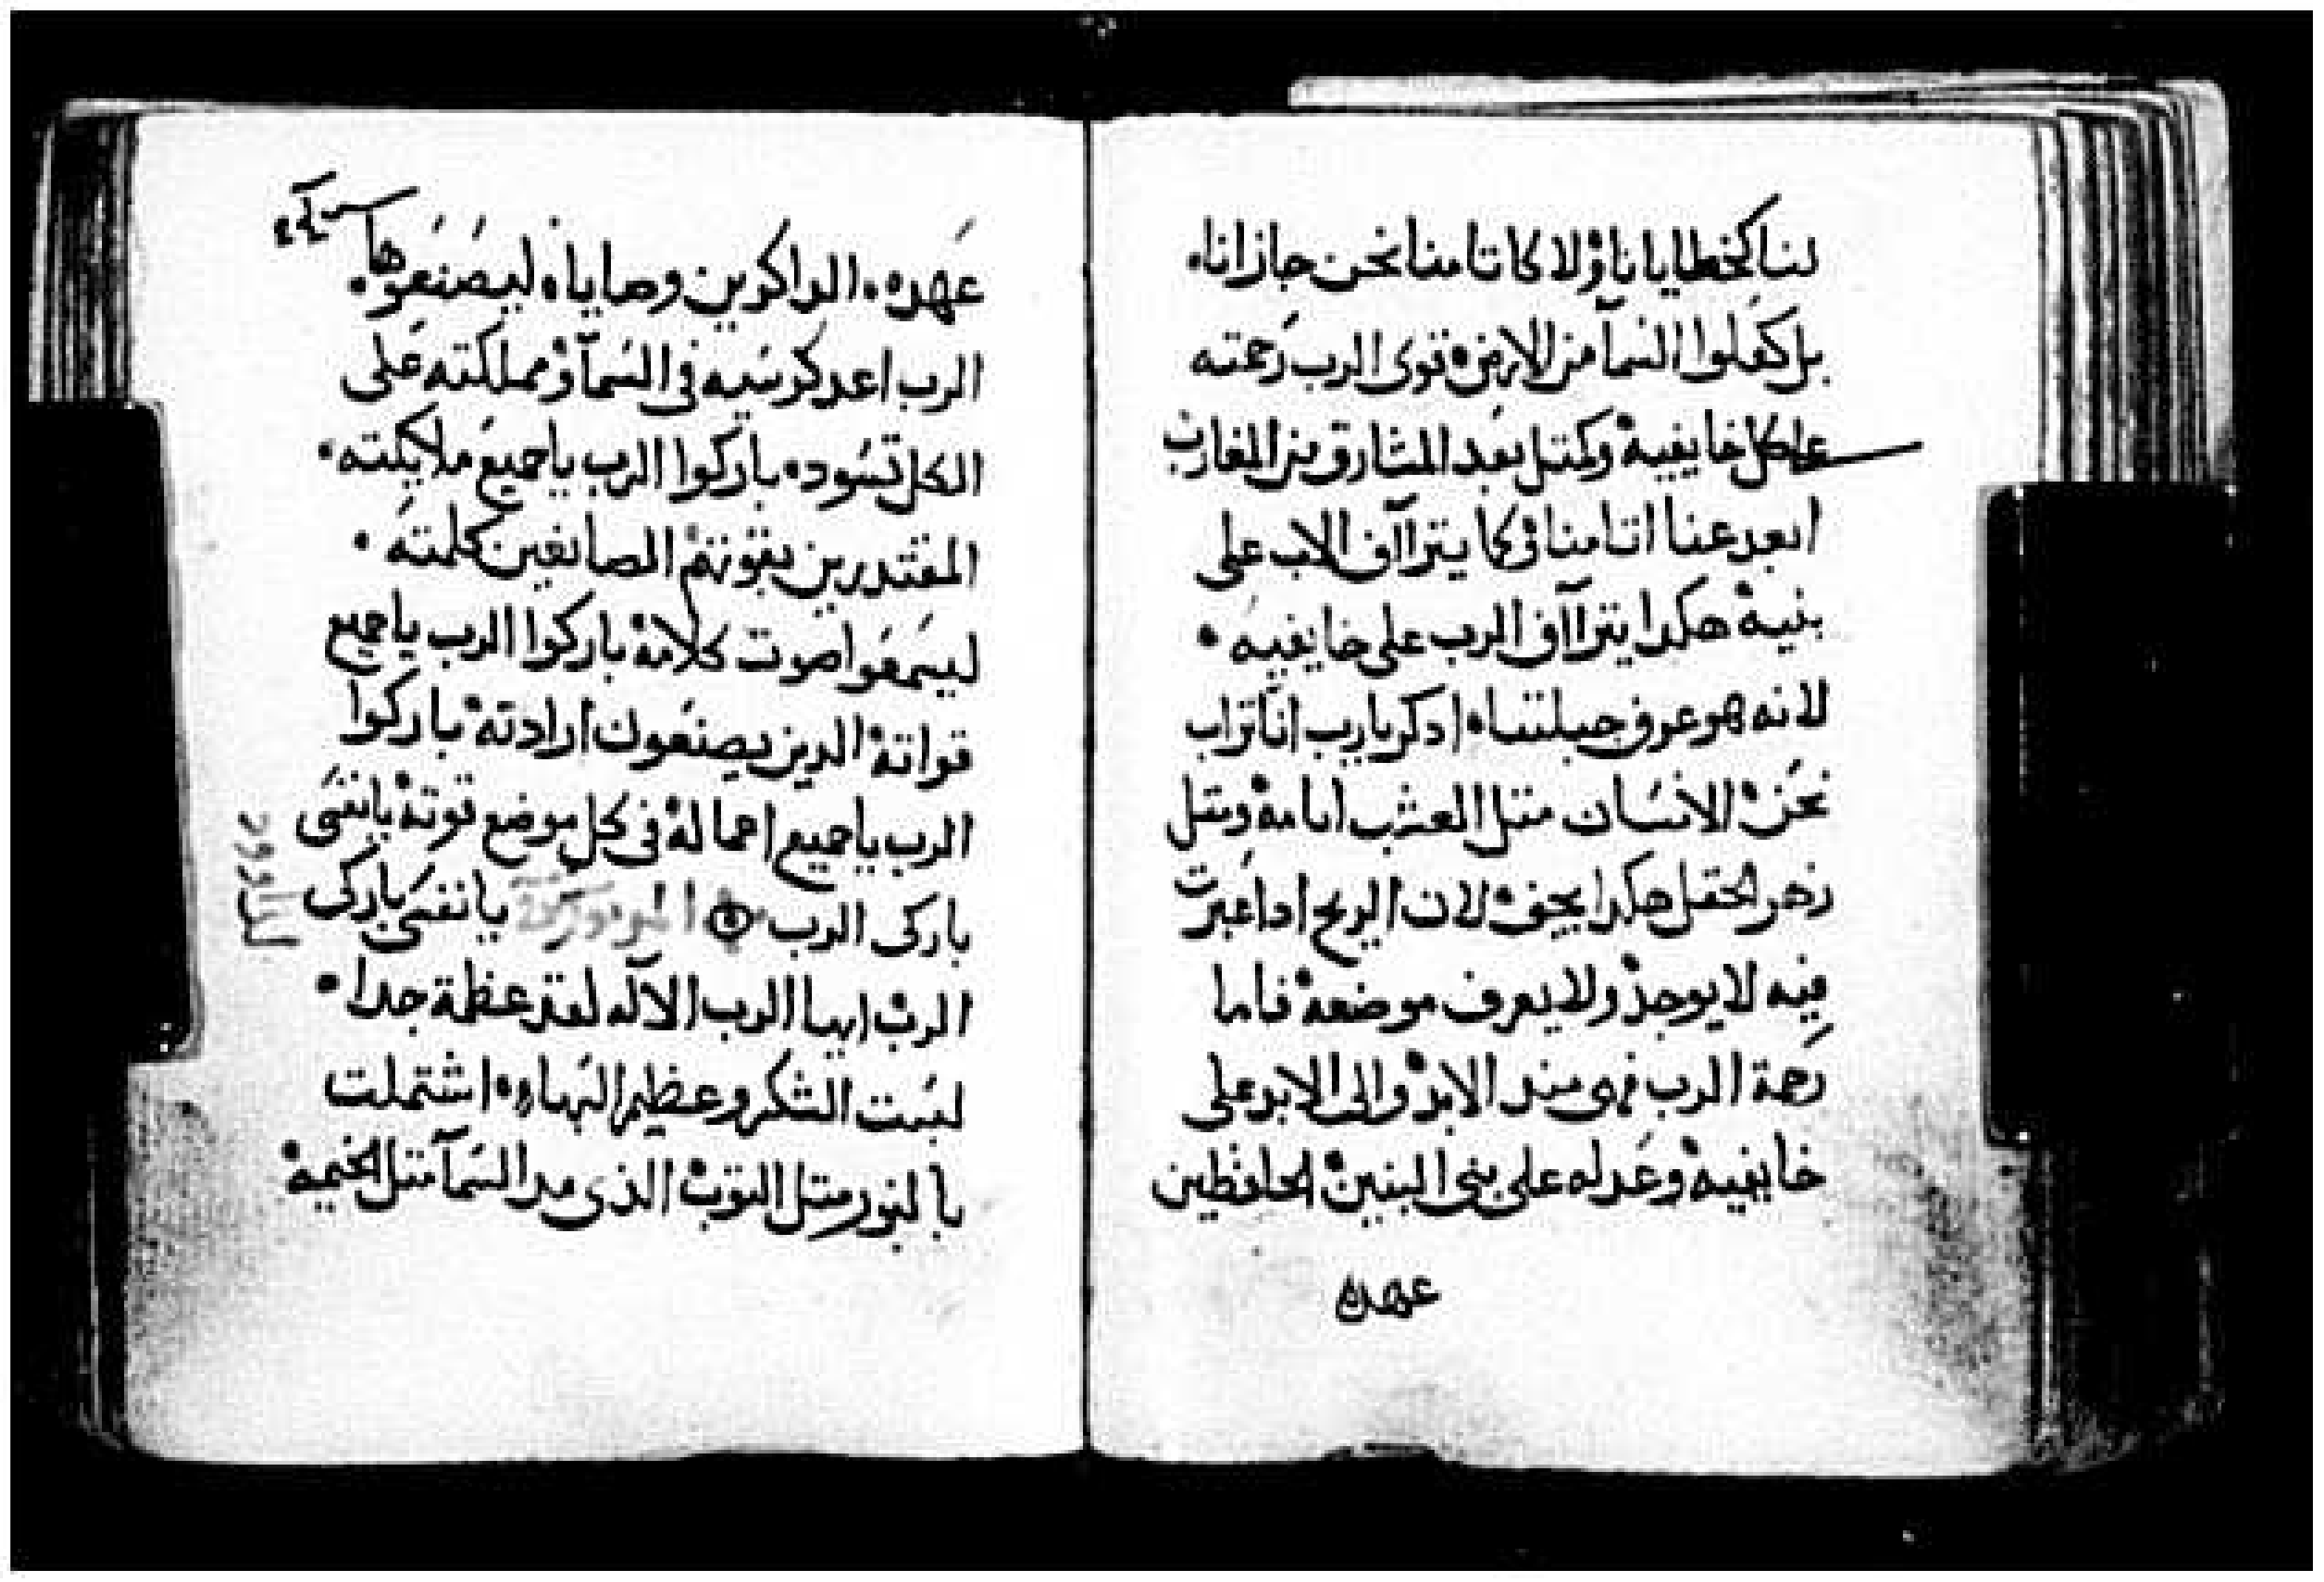 لنا كخطايانا ولا كاتامنا نحن جازانا.
بل كعلوا السمآ من الارض قوى الرب رحمته
على كل خايفيه وكمتل بعد المشارق من المغارب
ابعد عنا اتامنا وكما يتراآف الاب على
بنيه هكدا يتراآف الرب على خايفيه.
لانه هو عرف جبلتنا. ادكر يارب اننا تراب
نحن الانسان متل العشب ايامه ومتل
زهر الحقل هكدا يجف لان الريح ادا عبرت
فيه لا يوجد ولا يعرف موضعه فاما
رحمة الرب فهى مند الابد والى الابد على
خايفيه وعدله على بنى البنين الحافظين
عهده
عهده. الداكرين وصاياه ليصنعوها.
الرب اعد كرسيه في السمآ ومملكته على
الكل تسود. باركوا الرب ياجميع ملايكته.
المقتدرين بقوتهم الصانعين كلمته.
ليسمعوا صوت كلامه باركوا الرب ياجميع
قواته الدين يصنعون ارادته باركوا
الرب ياجميع اعماله في كل موضع قوته يانفسى
باركى الرب يانفسى باركى
الرب ايها الرب الآله لقد عظمة جدا.
لبست الشكر وعظيم البهاء. اشتملت
بالنور متل التوب الذى مد السمآ متل الخيمة